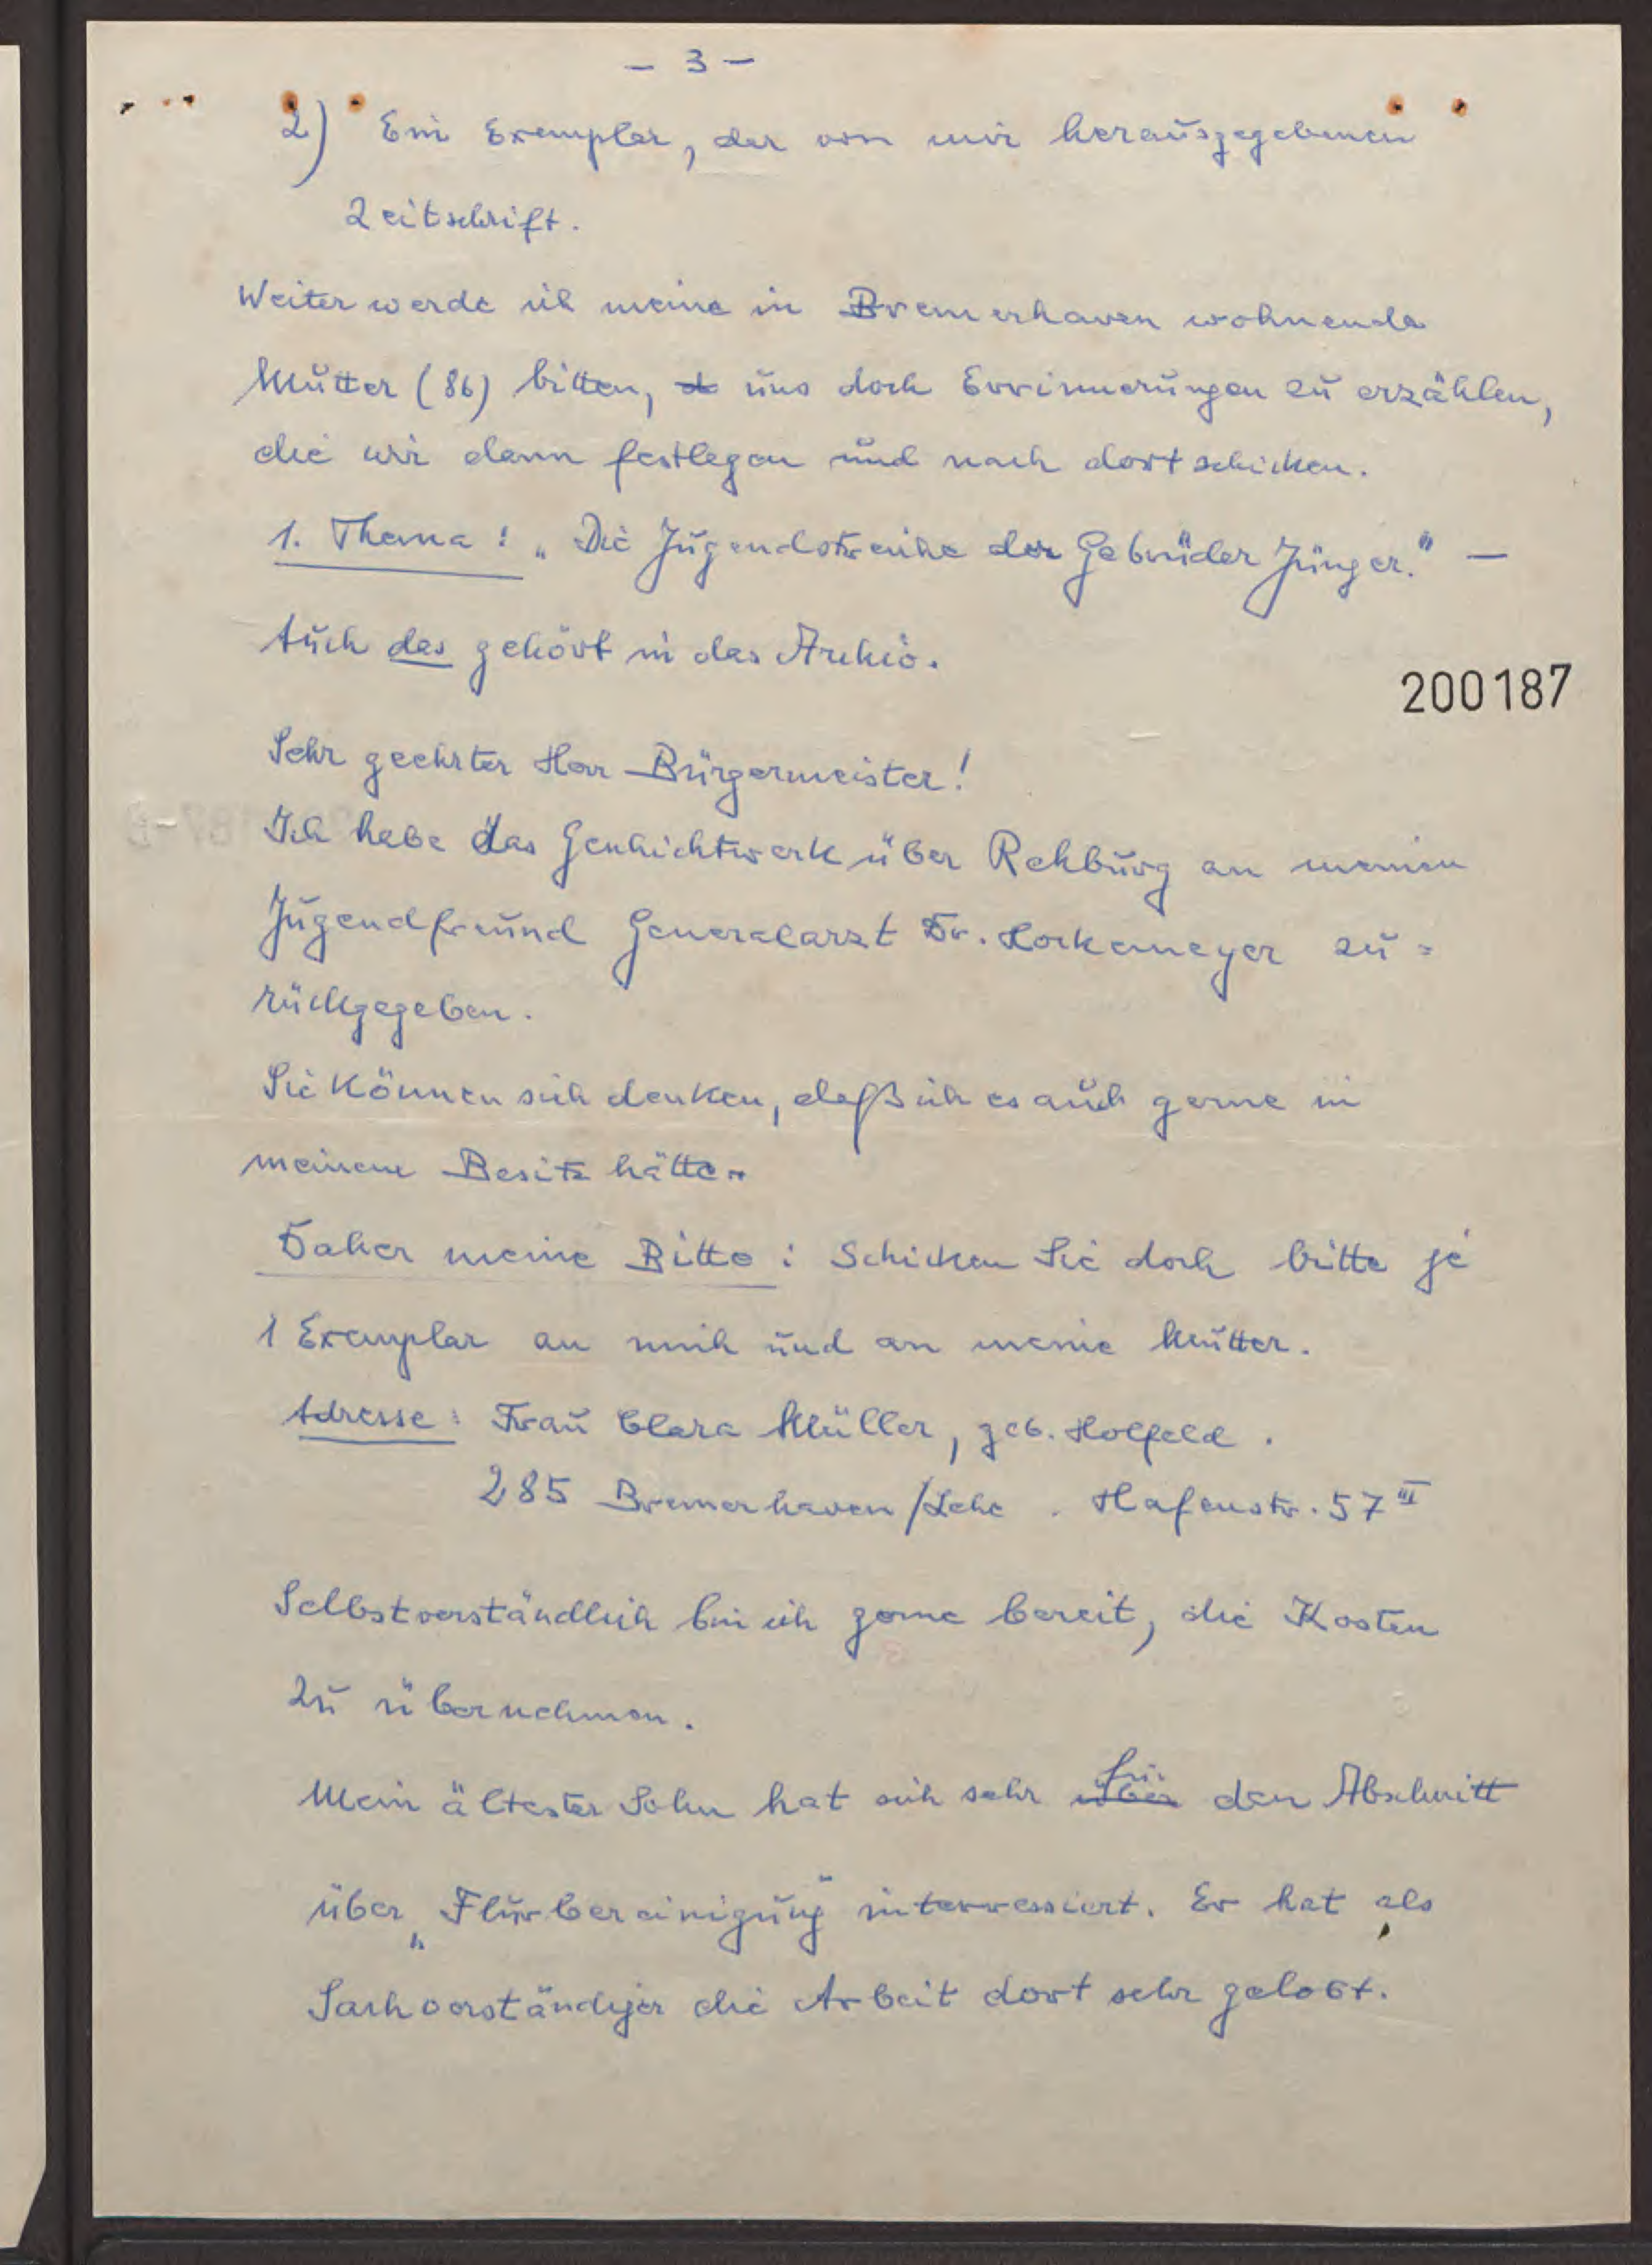 - 3 -
2) Ein Exemplar, der von mir herausgegebenen
Zeitschrift.
Weiter werde ich meine in Bremerhaven wohnende
Mutter (86) bitten, uns doch Errinnerungen zu erzählen,
die wir dann festlegen und nach dort schicken.
1. Thema: „Die Jugendstreiche der Gebrüder Jünger." —
Auch das gehört in das Archiv.
200187
Sehr geehrter Herr Bürgermeister!
Ich habe das Geschichtswerk über Rehburg an meinen
Jugendfreund Generalarzt Dr. Hockemeyer zu=
rückgegeben.
Sie können sich denken, daß ich es auch gerne in
meinem Besitz hätte.
Daher meine Bitte: Schicken Sie doch bitte je
1 Exemplar an mich und an meine Mutter.
Adresse: Frau Clara Müller, geb. Holfeld.
285 Bremerhaven/Lehe. Hafenstr. 57 III
Selbstverständlich bin ich gerne bereit, die Kosten
zu übernehmen.
Mein ältester Sohn hat sich sehr über für den Abschnitt
über „Flurbereinigung" interressiert. Er hat als
Sachverständiger die Arbeit dort sehr gelobt.